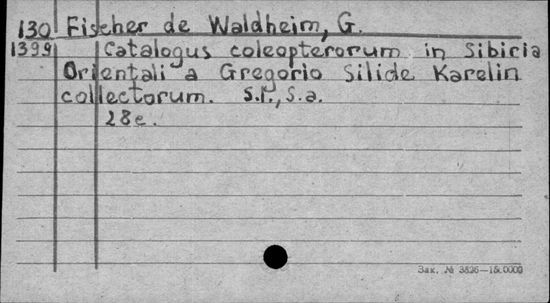 130 Fischer de Waldheim, G.
1399 Catalogus coleopterorum in Sibiria
Orientali a Gregorio Silide Karelin
collectorum. S.l., S.a.
28e.
Зак. № 3826—15.000